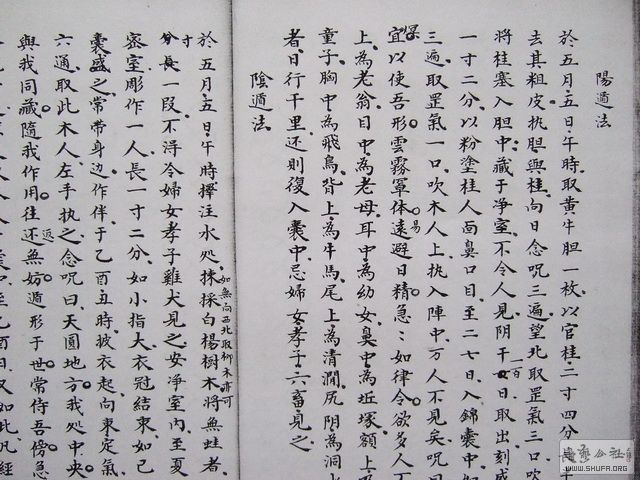 陽遁法
於五月五日午時取黃牛胆一枚以官桂二寸四分
去其粗皮执胆與桂向日念咒三遍望北取罡氣三口吹
將桂塞入胆中藏于净室不令人見阴干一百日取出刻成
一寸二分以粉塗桂人面鼻口目至二七日入錦囊中如
三遍取罡氣一口吹木人上执入陣中万人不見矣咒曰
宜以使吾形雲霧罩体易遠避日精急〻如律令欲多人
上為老翁目中為老母耳中為幼女鼻中為坵塚額上
童子胸中為飛鳥背上為牛馬尾上為清澗尻阴為洞
者日行千里还則復入囊中忌婦女孝子六畜見之
陰遁法
於五月五日午時擇注水处採白楊樹木將無蛀者
如無向西北取柳木亦可
寸分長一段不得令婦女孝子雞犬見之安净室内至夏
密室彫作一人長一寸二分如小指大衣冠結束如已
囊盛之常带身边作伴于乙酉丑時披衣起向東定氣
六通取此木人左手执之念咒曰天圓地方我处中央
與我同藏隨我作用往返还無妨遁形于世常侍吾傍急
WWW.SHUFA.ORG